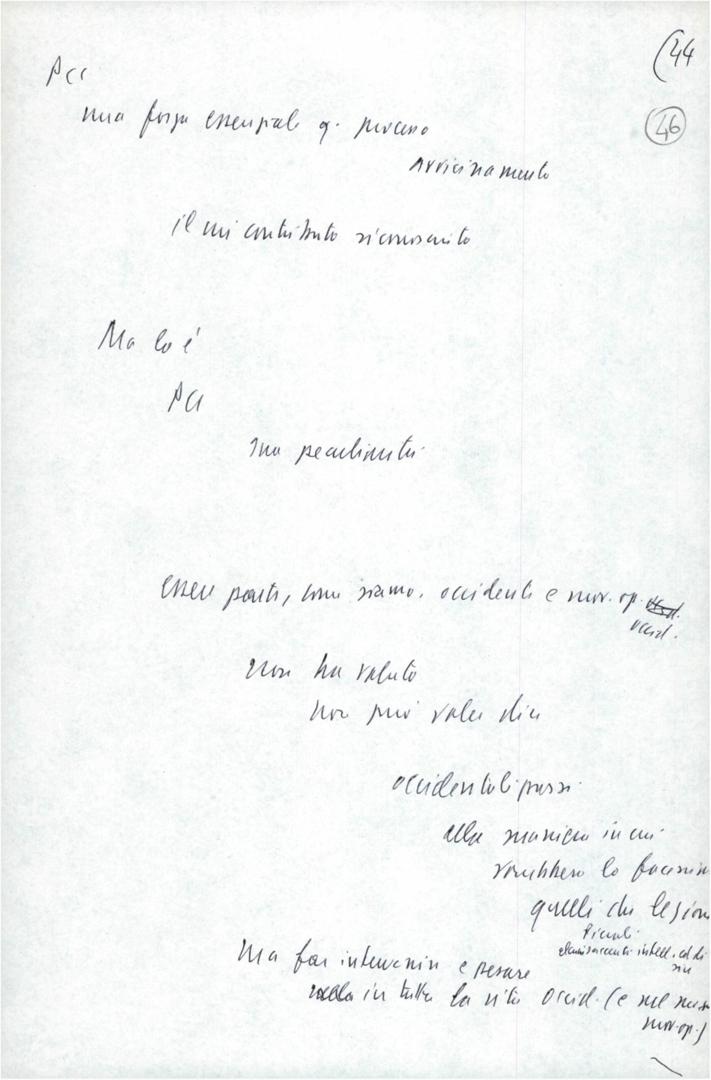 (44
PCI
46
una forza essenziale q. processo
avvicinamento
il cui contributo riconosciuto
Ma lo è
PCI
sua peculiarità
essere parte, come siamo, occidente e mov. op.
occid.
non ha voluto
non può voler dire
occidentalizzarsi
alla maniera in cui
vorrebbero lo facessimo
quelli che
Piccoli
Ma far intervenire e pesare
in tutta la vita occid. (e nel
mov. op.)